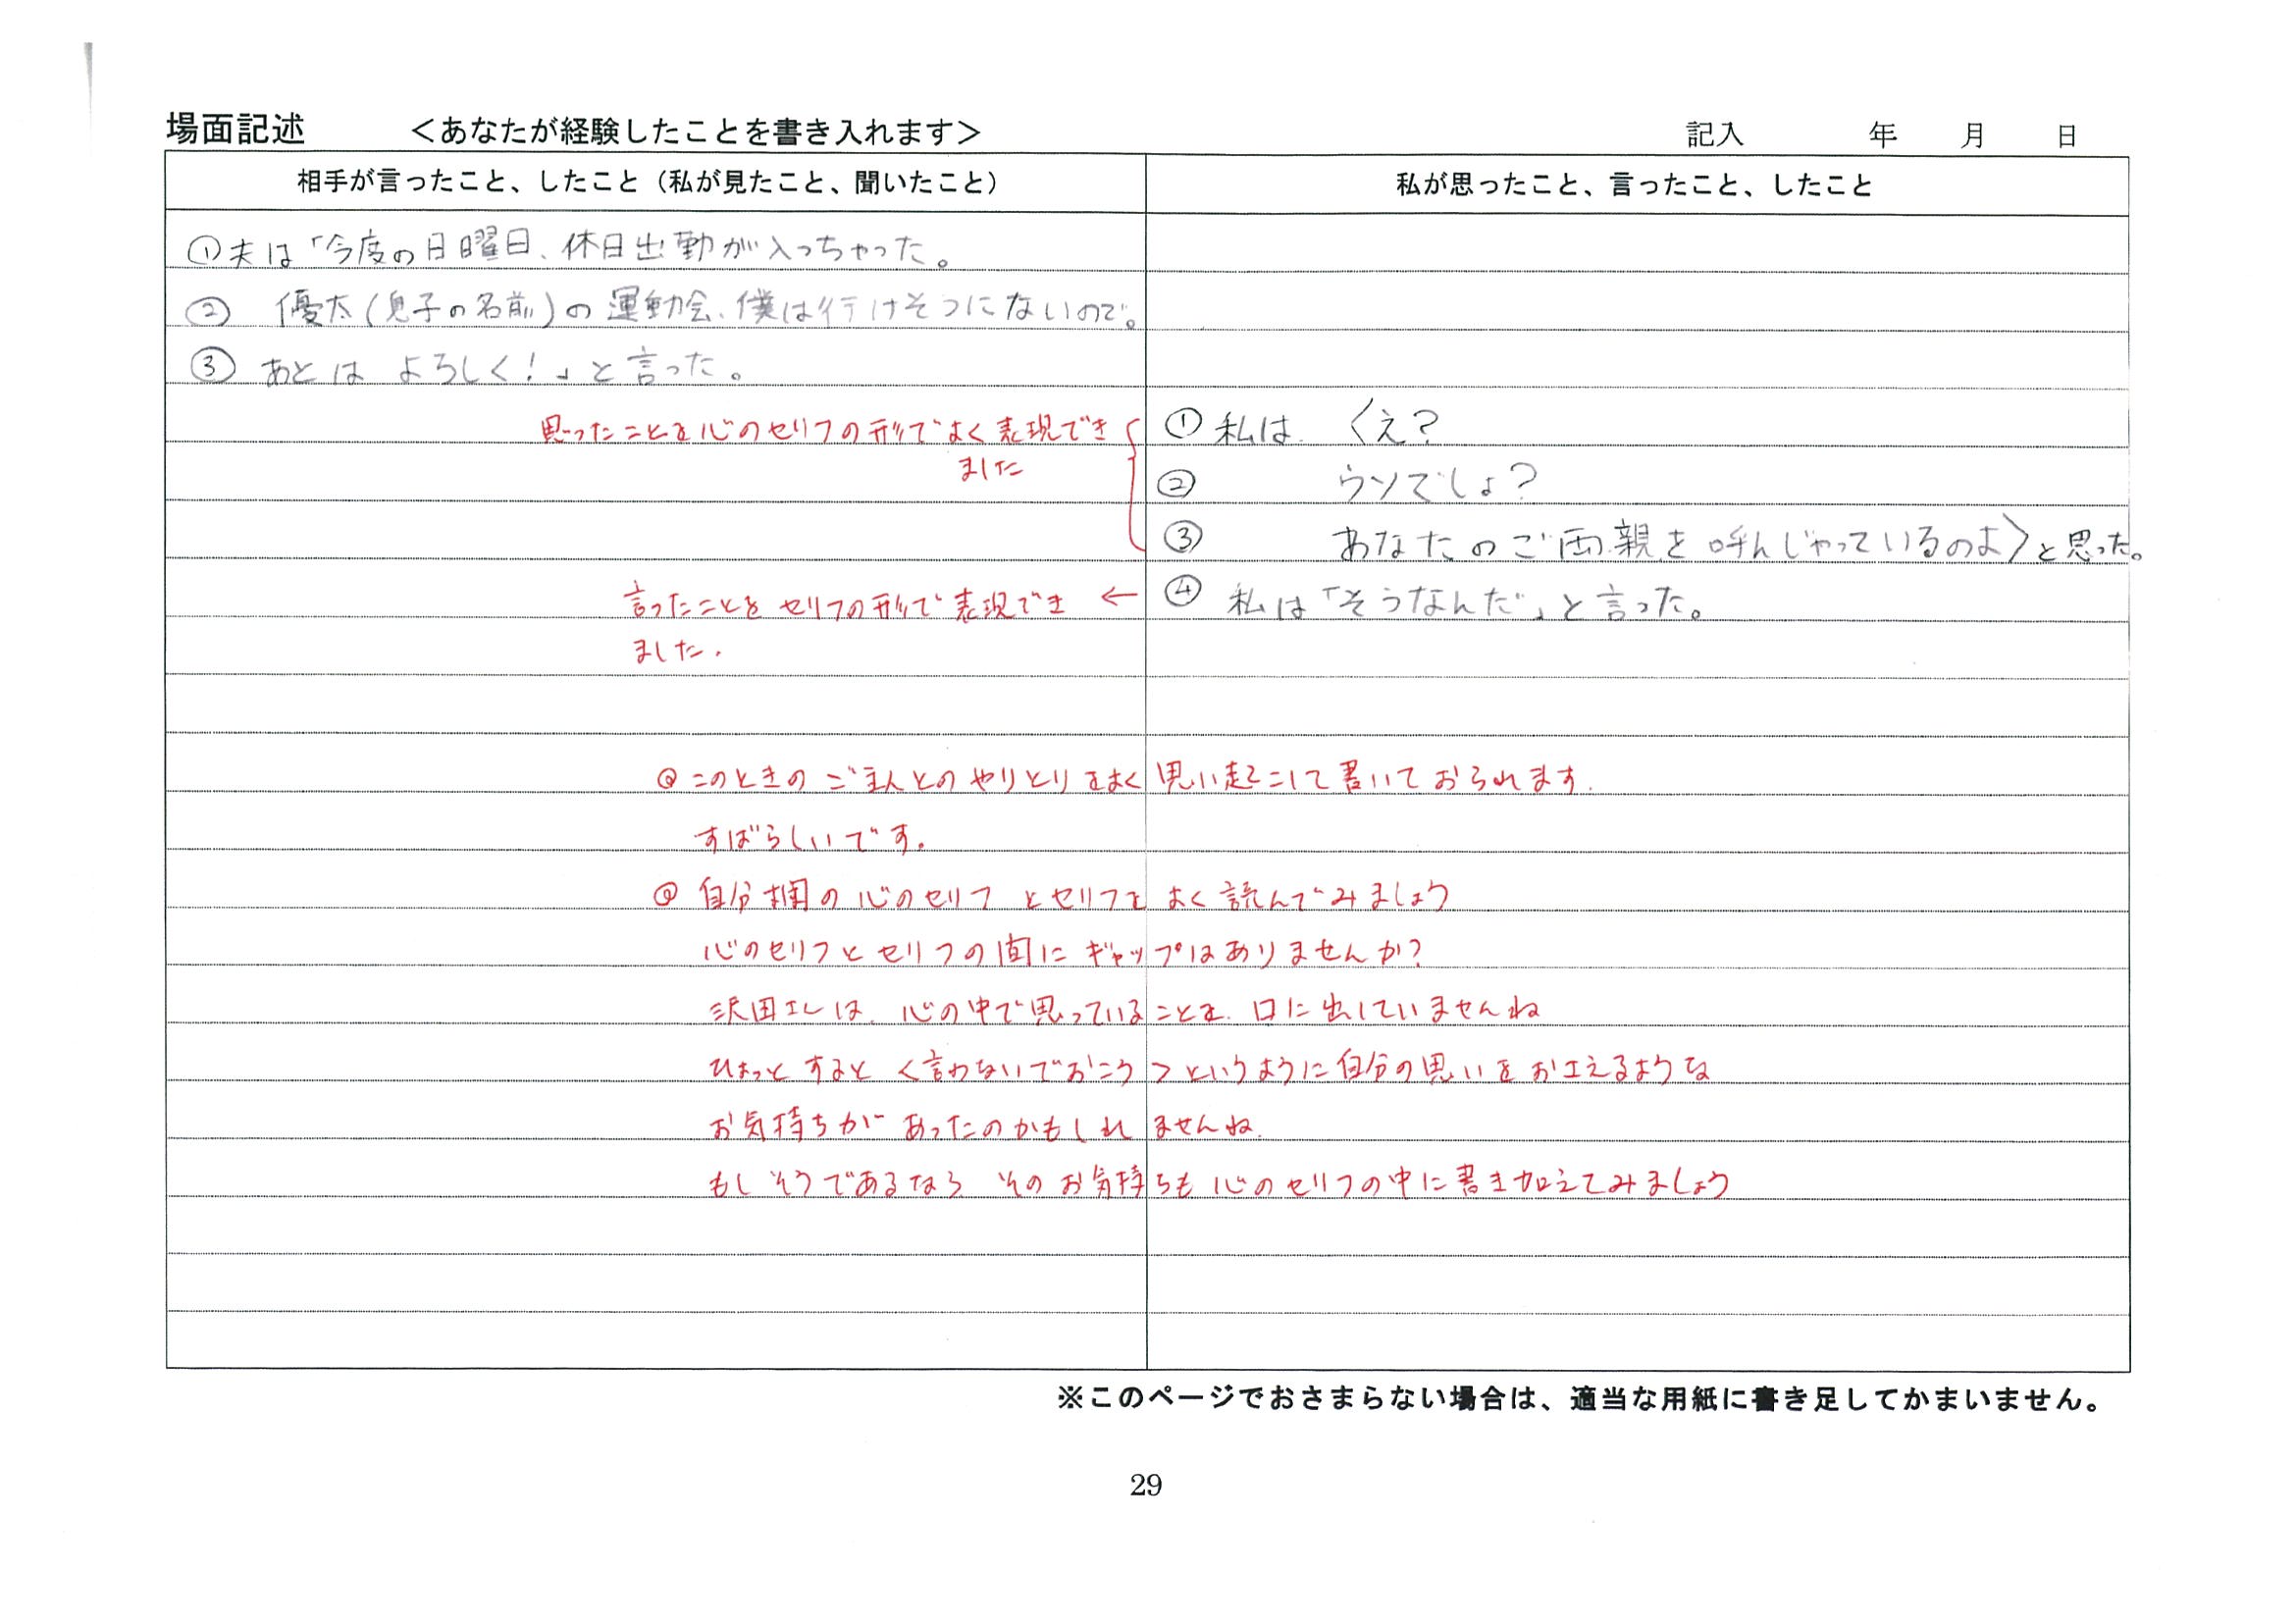 場面記述　＜あなたが経験したことを書き入れます＞　記入　年　月　日
相手が言ったこと、したこと（私が見たこと、聞いたこと）
私が思ったこと、言ったこと、したこと
①夫は「今度の日曜日、休日出勤が入っちゃった。
②　優太（息子の名前）の運動会、僕は行けそうにないので。
③　あとは よろしく！」と言った。
思ったことを心のセリフの形でよく表現でき
ました
①私は　〈え？
②　ウソでしょ？
③　あなたのご両親を呼んじゃっているのよ〉と思った。
言ったことを セリフの形で表現でき ←
ました.
④　私は「そうなんだ」と言った。
◎このときの ご主人とのやりとりをよく思い起こして書いておられます.
すばらしいです。
◎ 自分欄の心のセリフ とセリフを よく読んでみましょう
心のセリフとセリフの間に ギャップはありませんか？
沢田さんは、心の中で思っていることを、口に出していませんね
ひょっとすると 〈言わないでおこう〉というように自分の思いをおさえるような
お気持ちが あったのかもしれませんね.
もしそうであるなら そのお気持ちも心のセリフの中に書き加えてみましょう
※このページでおさまらない場合は、適当な用紙に書き足してかまいません。
29